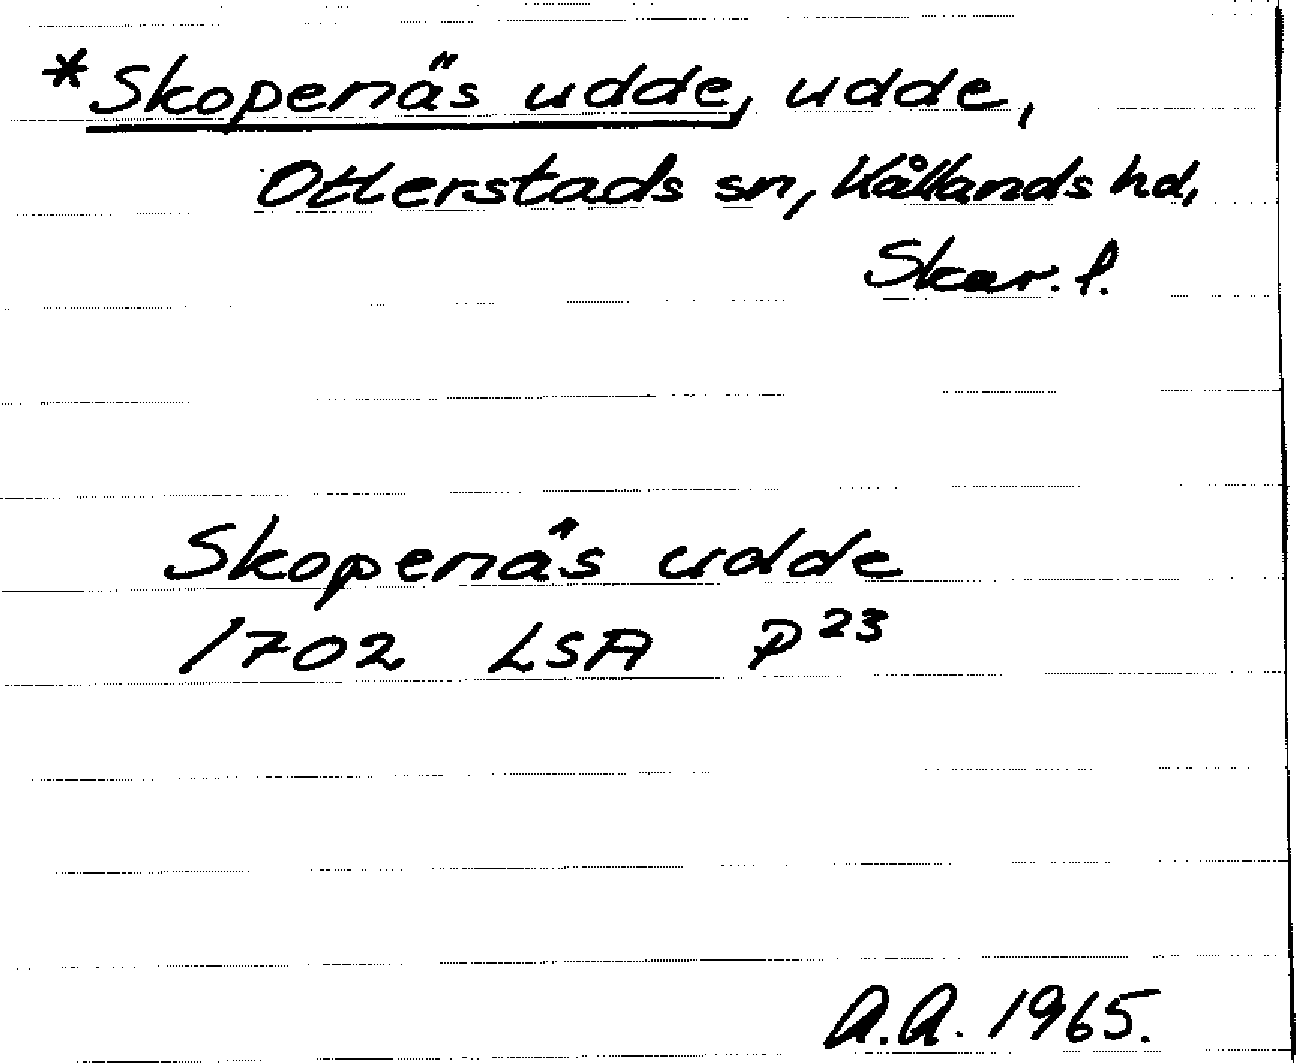 *Skopenäs udde, udde,
Otterstads sn, Kållands hd,
Skar. l.
Skopenäs udde
1702 LSA P 23
A.A. 1965.